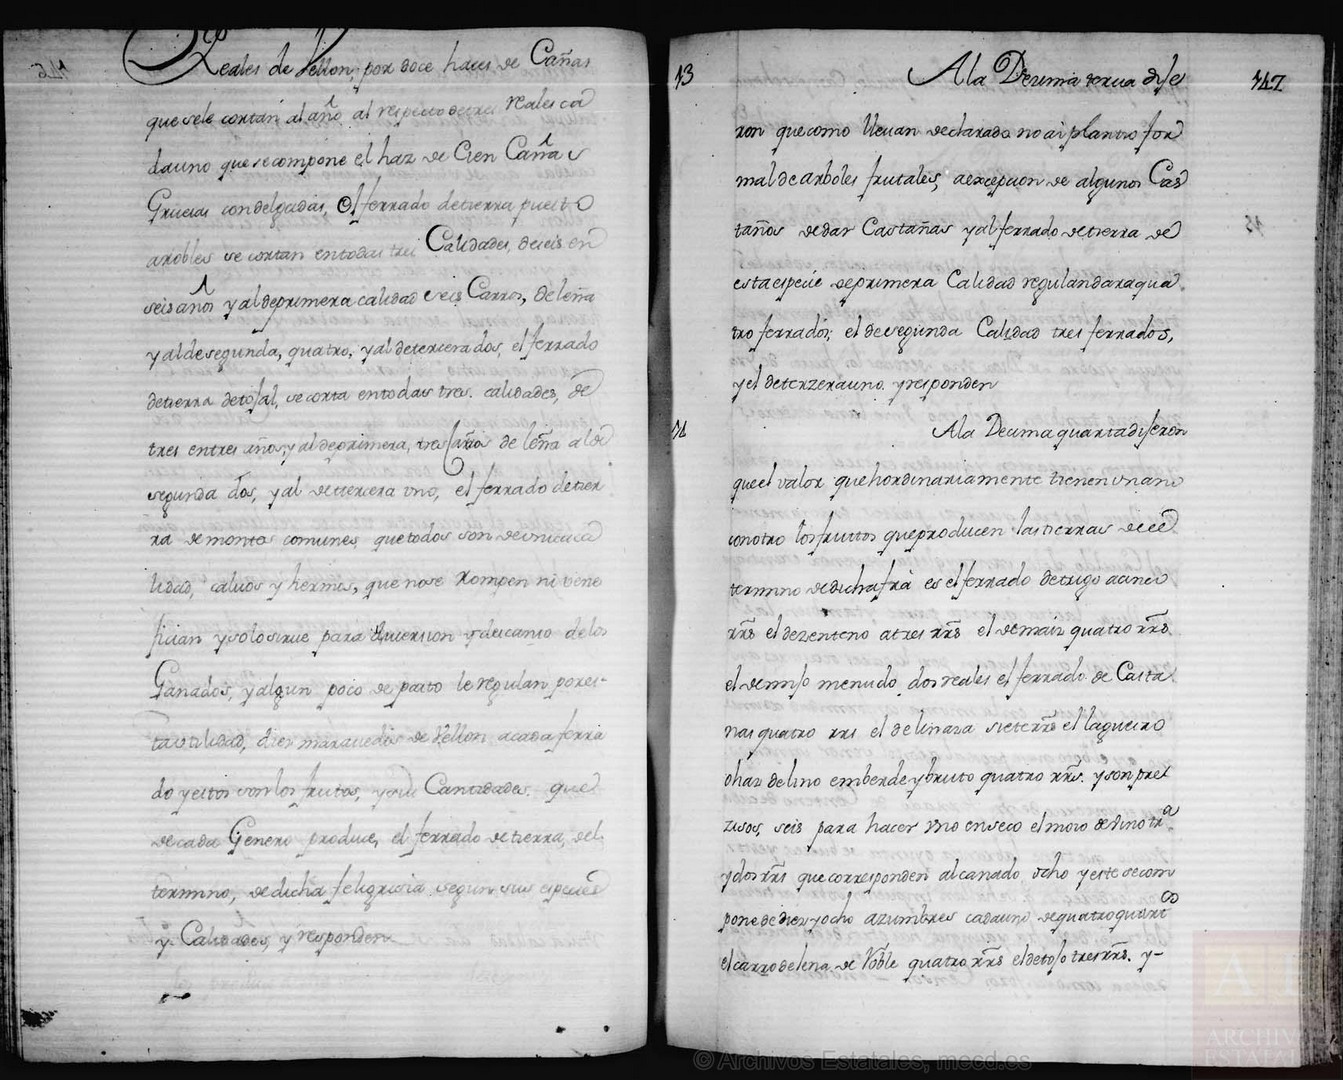 Reales de Vellon, por doce haces de Cañas
que sele cortan al año al respecto de tres reales ca
dauno que se compone el haz de Cien Cañas
Gruesas con delgadas, el ferrado de tierra puesto
a robles se cortan en todas tres Calidades, de seis en
seis años y al de primera calidad seis Carros, de leña
y al de segunda, quatro, y al de tercera dos, el ferrado
de tierra de tojal, se corta en todas tres calidades, de
tres en tres años, y al de primera, tres Carros de leña a la de
segunda dos, y al de tercera vno, el ferrado de tier
ra de montes comunes que todos son de vnica ca
lidad, calvos y hermos, que no se Rompen ni vene
fician y solo sirue para diuersion y descanso de los
Ganados, y algun poco de pasto le regulan por es-
ta vtilidad, diez maravedis de Vellon a cada ferra
do y estos son los frutos, y sus Cantidades que
de cada Genero produce, el ferrado de tierra, del
termino, de dicha feligresia segun sus especies
y Calidades, y responden
147
13 A la Dezima tercia dije
ron que como lleuan declarado no ai plantio for
mal de arboles frutales, a excepcion de algunos Cas
taños de dar Castañas y al ferrado de tierra de
esta especie de primera Calidad regulan dara qua
tro ferrados; el de segunda Calidad tres ferrados,
y el de terzera uno. y responden
14 A la Dezima quarta dijeron
que el valor que hordinariamente tienen vn año
con otro los fruttos que producen las tierras de el
termino de dicha fra es el ferrado de trigo a cinco
rrs el de zenteno a tres rrs el de maiz quatro rrs
el de mijo menudo dos reales el ferrado de Casta
ñas quatro rrs el de linaza siete rrs el llagueiro
o haz de lino en berde y bruto quatro rrs. y son pre
zisos, seis para hacer vno en seco el moio de vino tra
y dos rrs que corresponden al canado ocho y este se com
pone de diez y ocho azumbres cada uno de quatro quartos
el carro de leña de Roble quatro rrs el de tojo tres rrs. y-
© Archivos Estatales, mecd.es
ARCHIVOS
ESTATALES